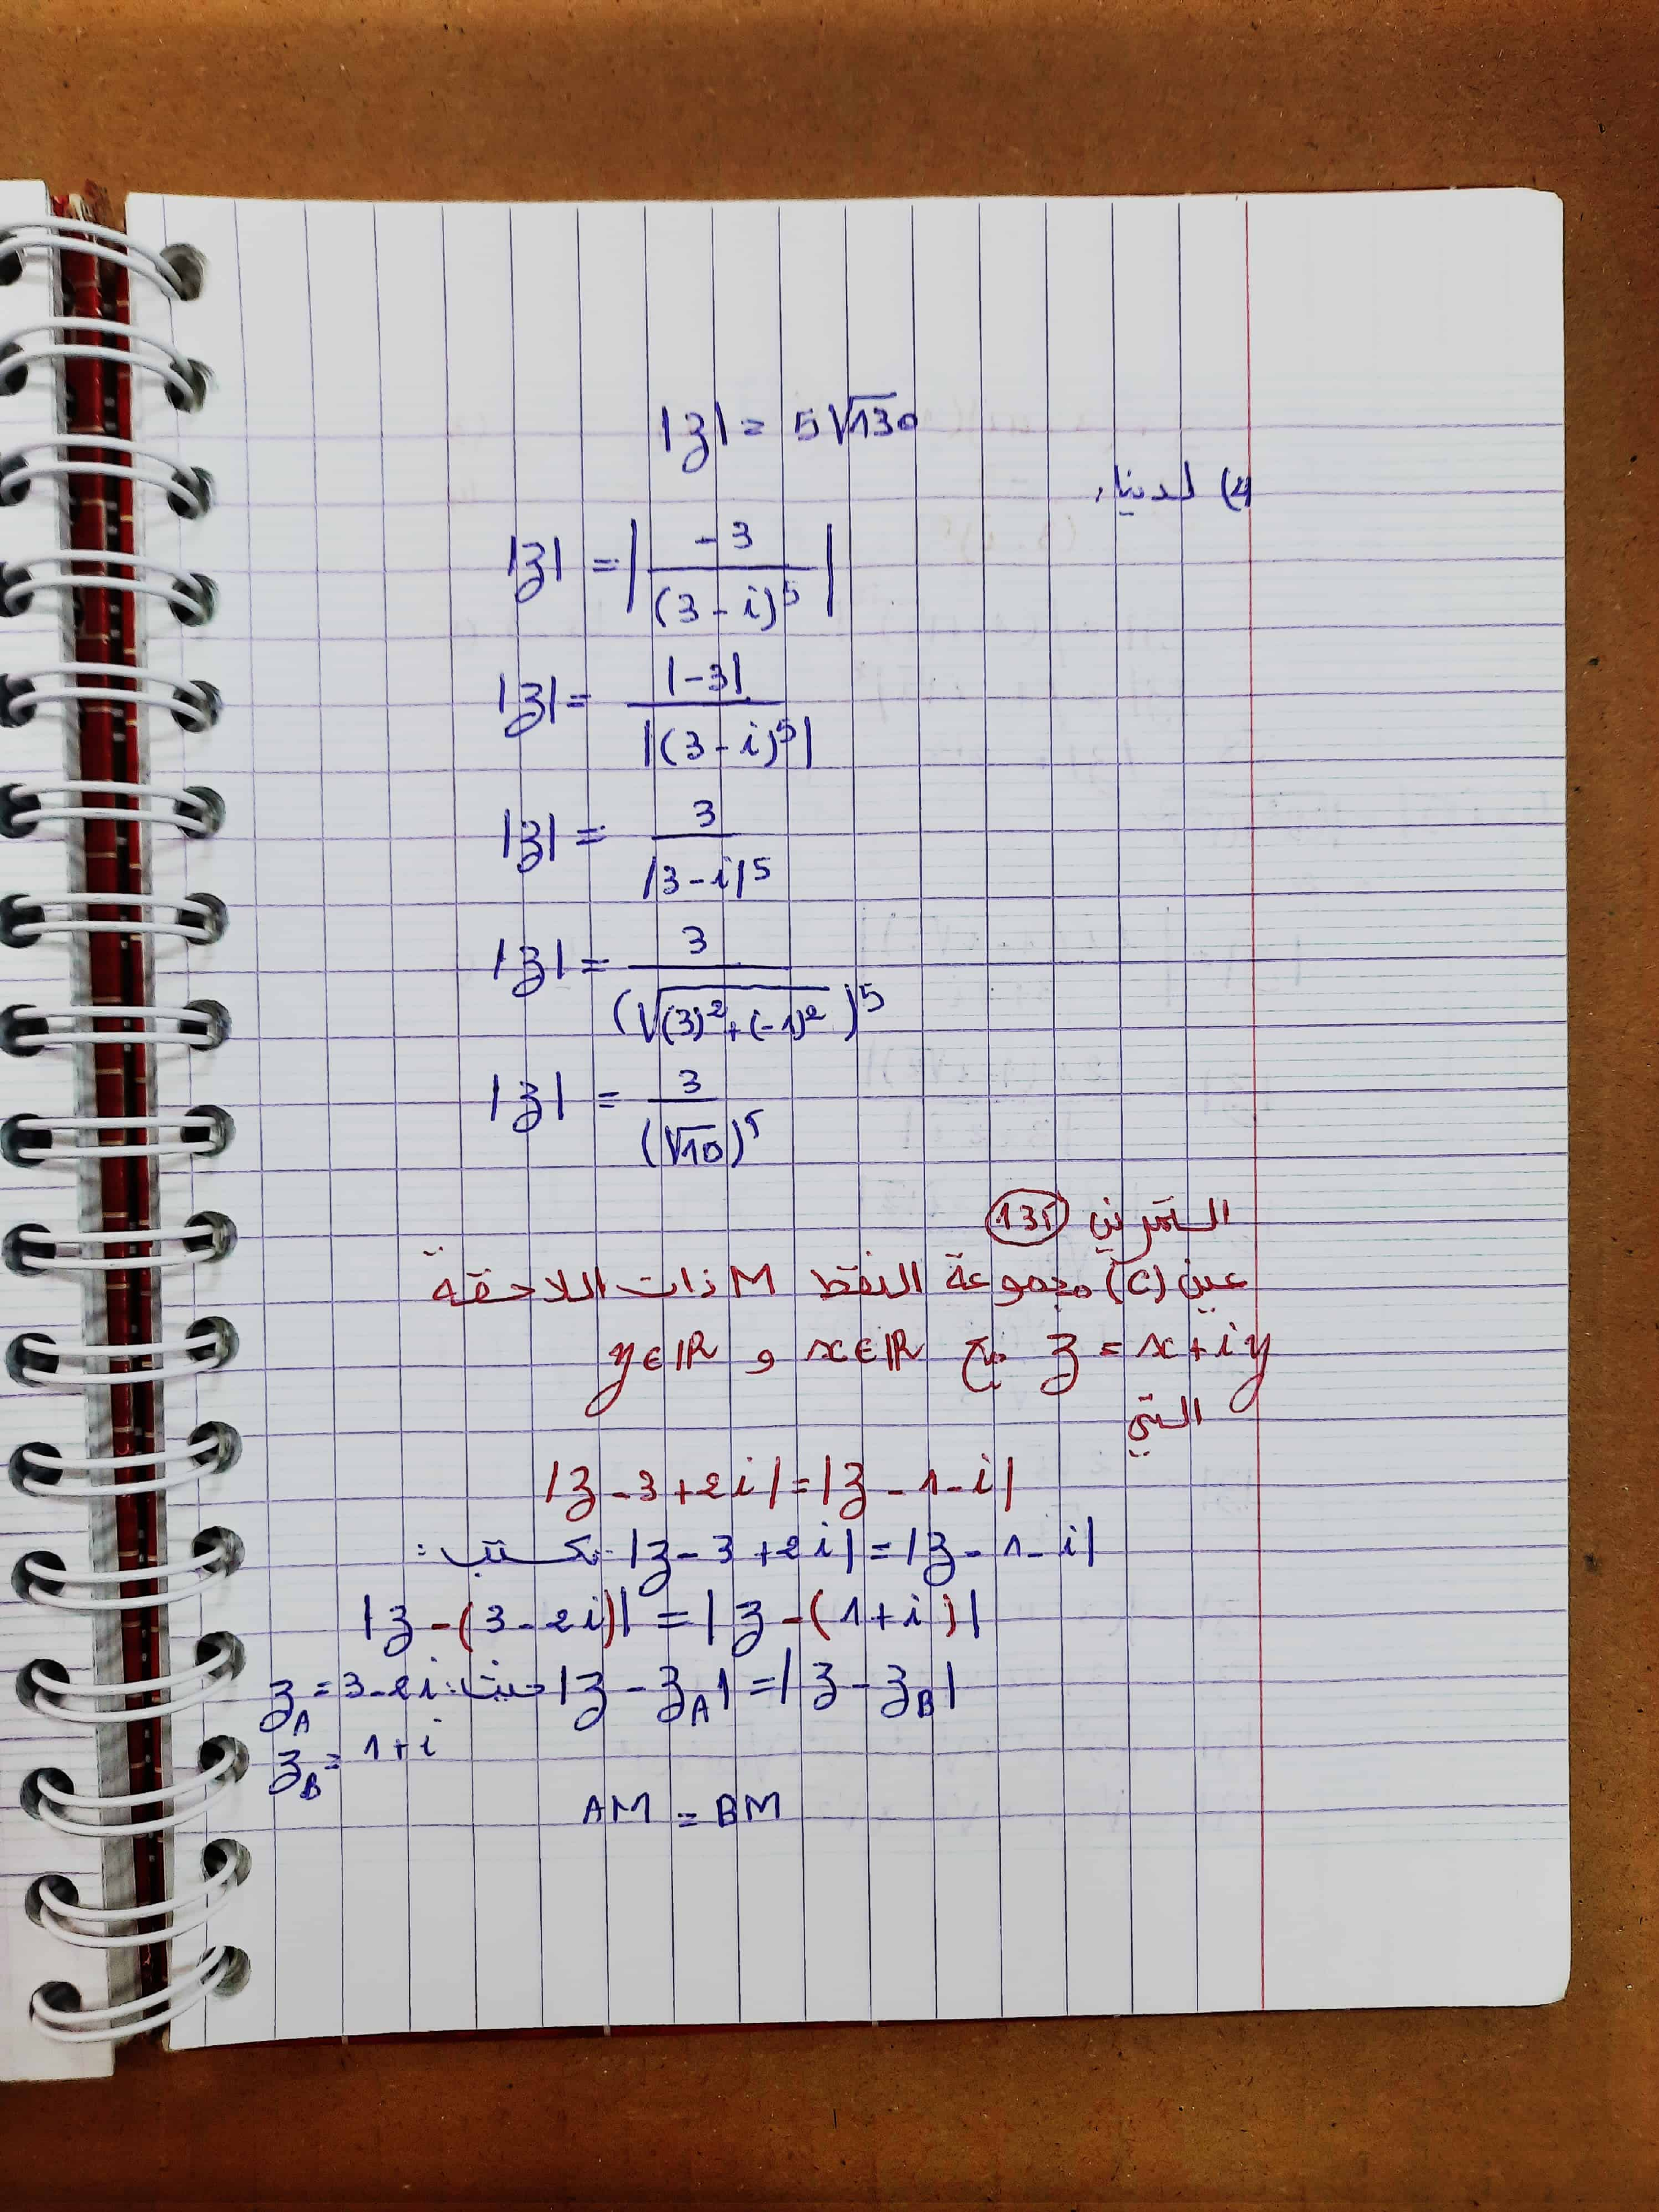 |z| = 5√130
4) لدينا:
|z| = |-3/(3-i)⁵|
|z| = |-3|/|(3-i)⁵|
|z| = 3/|3-i|⁵
|z| = 3/(√(3)²+(-1)²)⁵
|z| = 3/(√10)⁵
التمرين
عين (C) مجموعة النقط M ذات اللاحقة
z = x+iy مع x∈ℝ و y∈ℝ
التي
|z-3+2i|=|z-1-i|
|z-3+2i|=|z-1-i| تكتب:
|z-(3-2i)|=|z-(1+i)|
|z-z_A|=|z-z_B| حيث: z_A=3-2i
z_B=1+i
AM = BM